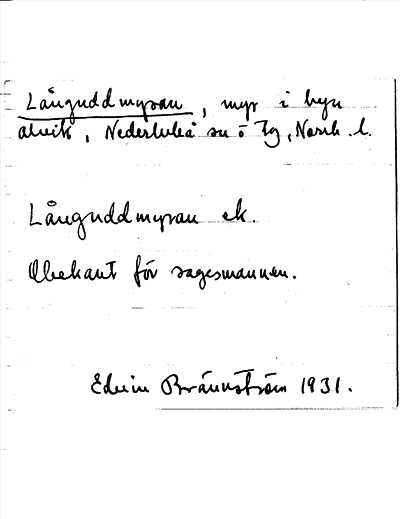 Långuddmyran, myr i byn
Alvik, Nederluleå sn ö Tg, Norrb. l.
Långuddmyran ek.
Obekant för sagesmannen.
Edvin Brännström 1931.